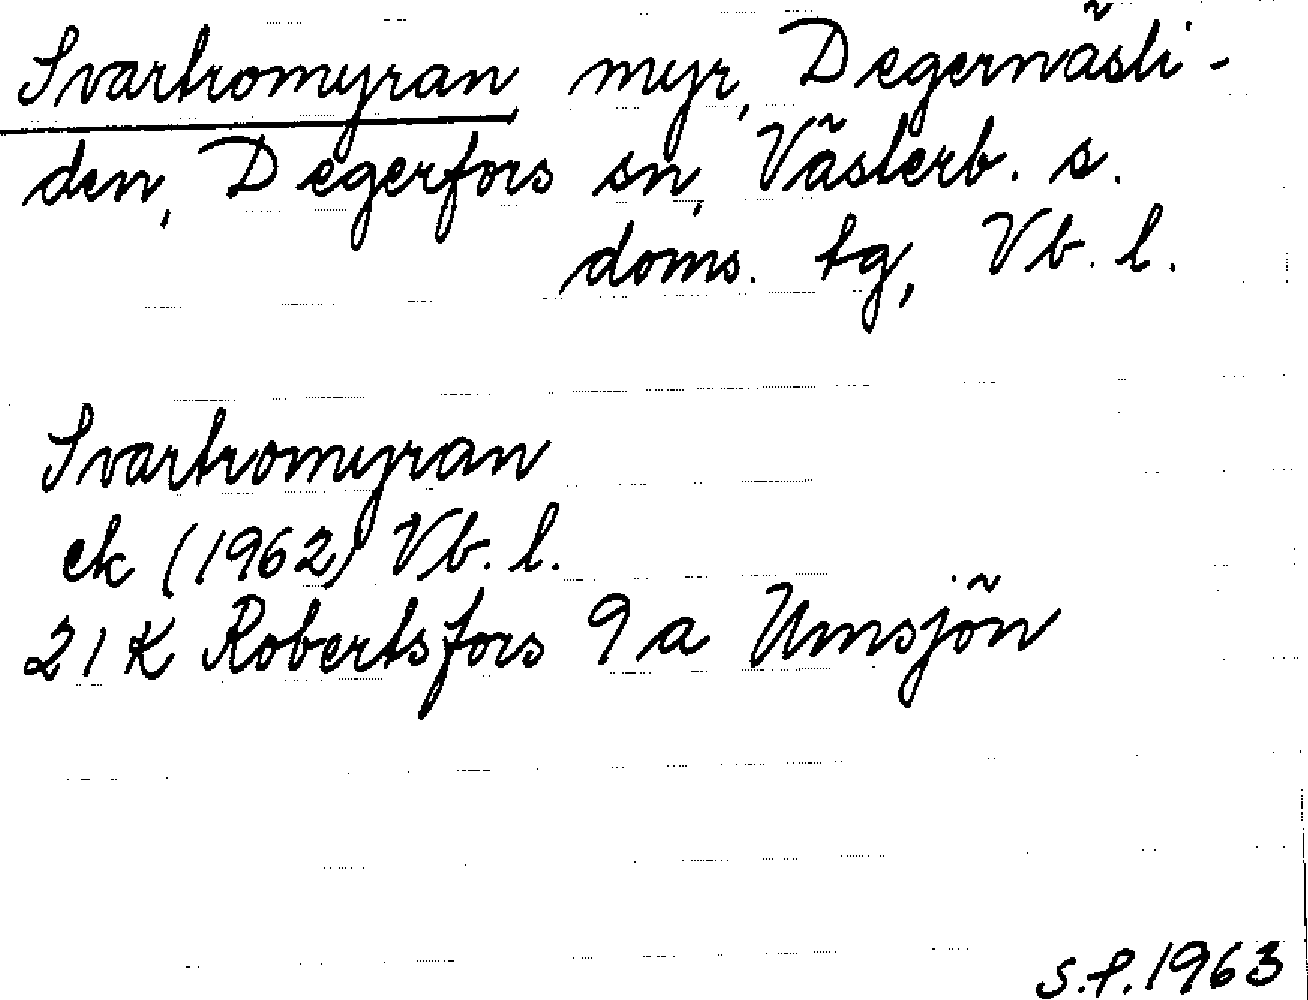 Svartromyran myr, Degernäsli-
den, Degerfors sn, Västerb. s.
doms. tg, Vb. l.
Svartromyran
ek (1962) Vb. l.
21 K Robertsfors 9 a Umsjön
S.P. 1963